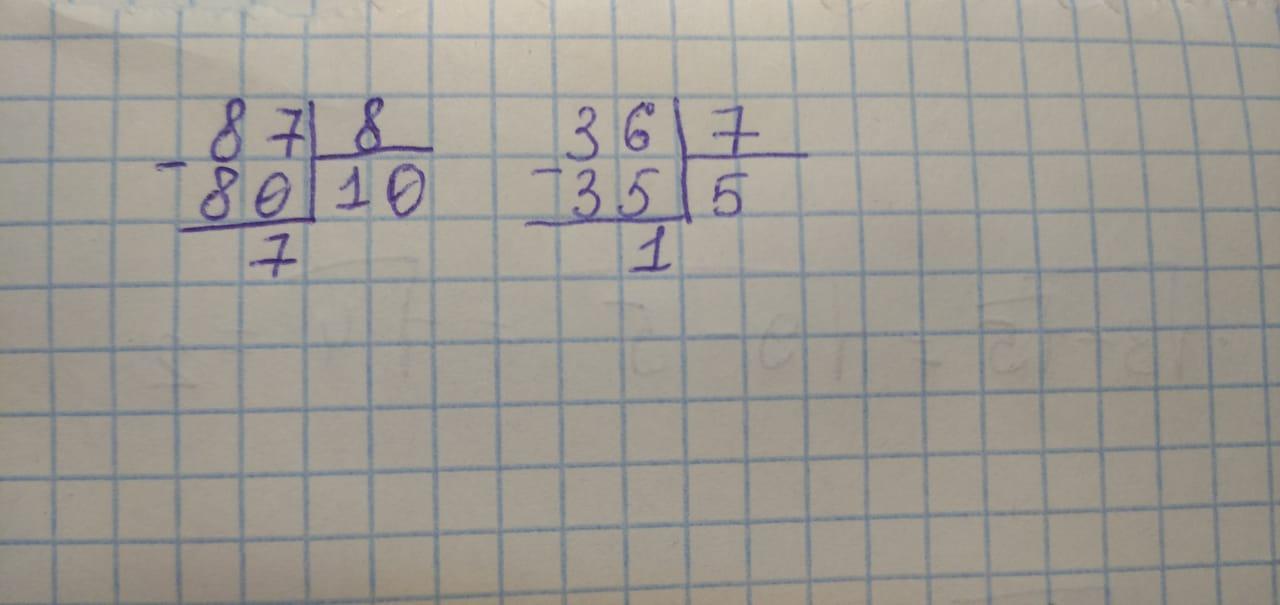 87 8 36 7
- 80 10 - 35 5
7 1